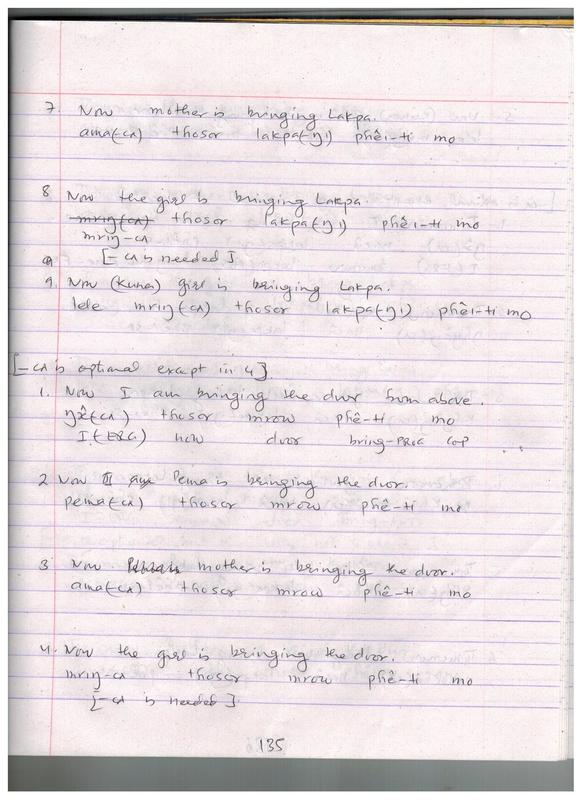 7. Now mother is bringing Lakpa.
ama(-cʌ) thosor lakpa(-ŋi) phêi-ti mo
8 Now the girl is bringing Lakpa
mriŋ(-cʌ) thosor lakpa(-ŋi) phêi-ti mo
mriŋ-cʌ
9 [-cʌ is needed]
9. Now (Kuna) girl is bringing Lakpa.
lele mriŋ(-cʌ) thosor lakpa(-ŋi) phêi-ti mo
[-cʌ is optional except in 4]
1. Now I am bringing the door from above.
ŋʌ̂(-cʌ) thosor mrow phê-ti mo
I(-ERG) now door bring-PROG COP
2 Now Pema is bringing the door.
pema(-cʌ) thosor mrow phê-ti mo
3 Now mother is bringing the door.
ama(-cʌ) thosor mrow phê-ti mo
4. Now the girl is bringing the door.
mriŋ-cʌ thosor mrow phê-ti mo
[-cʌ is needed]
135